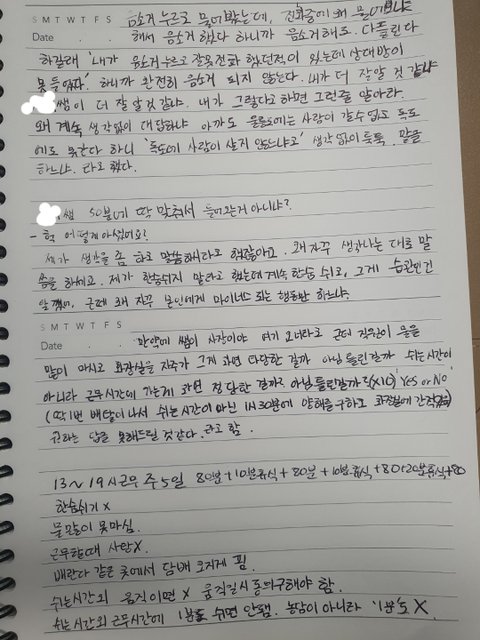 S M T W T F S
Date
음소거 누르고 물어봤는데, 전화중에 왜 물어보냐
해서 음소거 했다 하니까 음소거해도, 다들린다
하길래 '내가 음소거 누르고 잘못전화 했던적이 있는데 상대방이
못들었다.' 하니까 완전히 음소거 되지 않는다. 내가 더 잘알 것 같냐
쌤이 더 잘알 것 같냐. 내가 그렇다고하면 그런줄 알아라
왜 계속 생각없이 대답하냐 아까도 울릉도에는 사람이 갈수 있고 독도
에도 못간다 하니 '독도에 사람이 살지 않느냐고' 생각없이 툭툭 말을
하느냐. 라고 했다.
쌤 50분에 딱 맞춰서 들어오는거 아니냐?
- 헉 어떻게 아셨어요?
제가 생각을 좀 하고 말씀하시라고 했잖아요. 왜 자꾸 생각나는 대로 말
씀을 하세요. 제가 한숨쉬지 말라고 했는데 계속 한숨 쉬고, 그게 습관인건
알겠어, 근데 왜 자꾸 본인에게 마이너스 되는 행동만 하느냐.
S M T W T F S
Date
만약에 쌤이 사장이야 여기 오너라고 근데 직원이 물을
많이 마시고 화장실을 자주가 그게 과연 타당한 걸까 아님 틀린걸까 쉬는시간이
아니라 근무시간에 가는게 과연 정당한 걸까 아님 틀린걸까? (X10) 'Yes or No'
(딱 1번 배탈이 나서 쉬는시간이 아닌 1시 30분에 양해를 구하고 화장실에 간적있음)
라고 함.
13~19시근무 주5일 80분+10분휴식+80분+10분휴식+80+20분휴식+80
한숨쉬기 X
물 많이 못마심.
근무할때 사탕 X.
베란다 같은 곳에서 담배 오지게 핌
쉬는시간외 움직이면 X 움직일시 동의구해야 함.
쉬는시간외 근무시간에 1분도 쉬면 안됌. 농담이 아니라 '1분'도 X